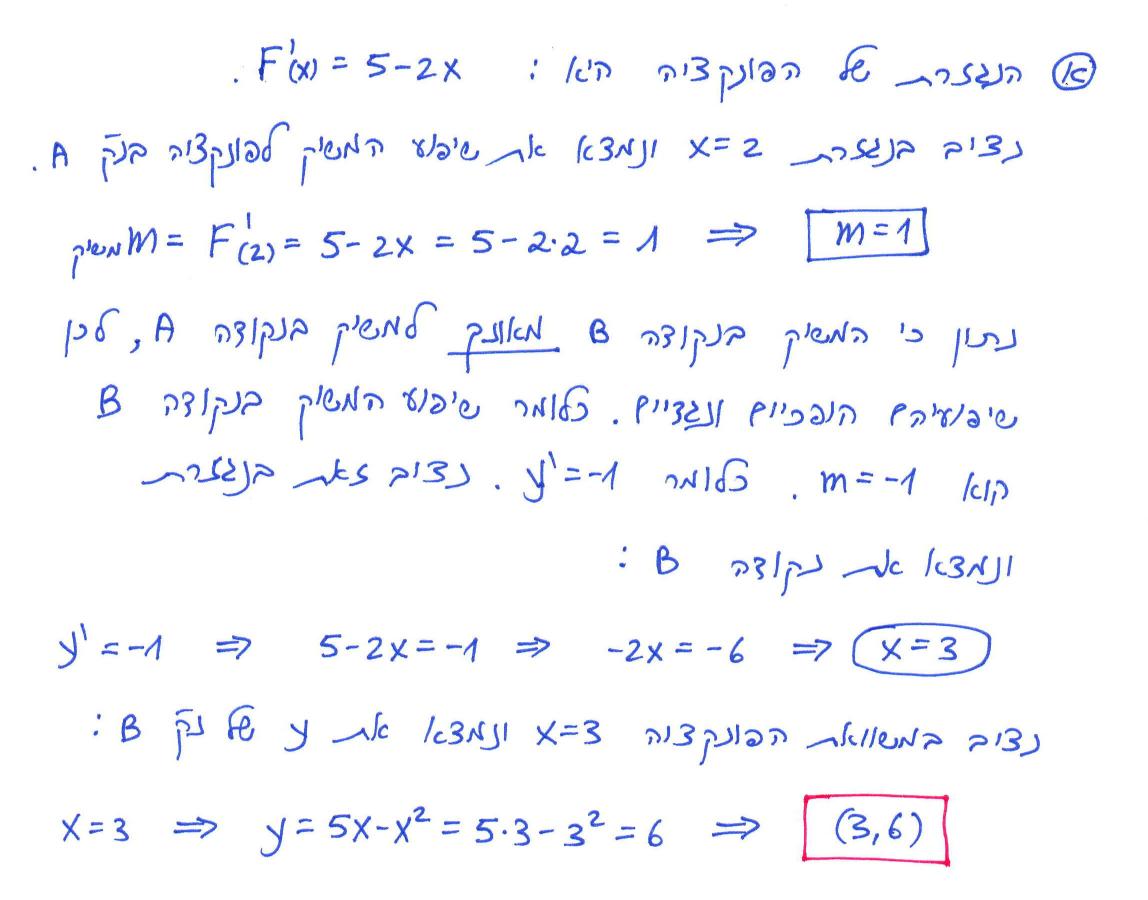 א הנגזרת של הפונקציה היא : F'(x) = 5-2x .
נציב בנגזרת x=2 ונמצא את שיפוע המשיק לפונקציה בנק' A .
m משיק = F'(2) = 5-2x = 5-2·2 = 1 ⇒ m=1
נתון כי המשיק בנקודה B מאונך למשיק בנקודה A, לכן
שיפועיהם הופכיים ונגדיים. כלומר שיפוע המשיק בנקודה B
הוא m=-1 . כלומר y'=-1 . נציב זאת בנגזרת
ונמצא את נקודה B :
y'=-1 ⇒ 5-2x=-1 ⇒ -2x=-6 ⇒ x=3
נציב במשוואת הפונקציה x=3 ונמצא את y של נק' B :
x=3 ⇒ y=5x-x²=5·3-3²=6 ⇒ (3,6)